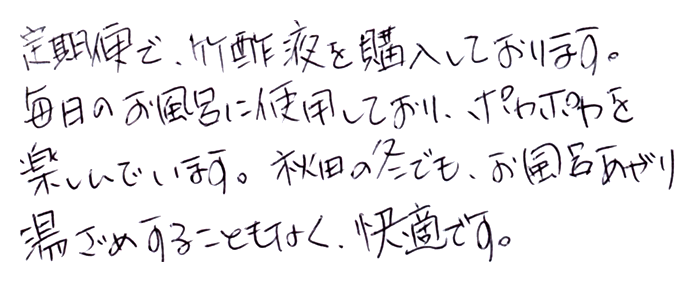 定期便で、竹酢液を購入しております。
毎日のお風呂に使用しており、ポカポカを
楽しんでいます。秋田の冬でも、お風呂あがり
湯ざめすることもなく、快適です。